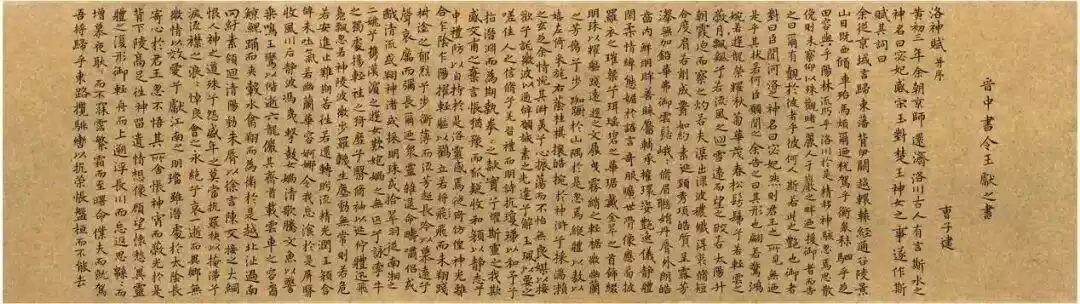 晉中書令王獻之書
洛神賦 并序 曹子建
黃初三年余朝京師還濟洛川古人有言斯水之
神名曰宓妃感宋玉對楚王神女之事遂作斯
賦其詞曰
余從京域言歸東藩背伊闕越轘轅經通谷陵景
山日既西傾車殆馬煩爾迺稅駕乎蘅皋秣駟乎芝
田容與乎陽林流眄乎洛川於是精移神駭忽焉思散
俯則未察仰以殊觀睹一麗人于巖之畔迺援御者而告
之曰爾有覿於彼者乎彼何人斯若此之豔也御者
對曰臣聞河洛之神名曰宓妃然則君王之所見無
迺是乎其狀若何臣願聞之余告之曰其形也翩若驚鴻
婉若遊龍榮耀秋菊華茂春松髣髴兮若輕雲之
蔽月飄颻兮若流風之迴雪遠而望之皎若太陽升
朝霞迫而察之灼若夫渠出淥波襛纖得衷脩短
合度肩若削成腰如約素延頸秀項皓質呈露芳
澤無加鉛華弗御雲髻峩峩脩眉聯娟丹脣外朗
皓齒內鮮明眸善睞靨輔承權瓌姿豔逸儀靜體
閑柔情綽態媚於語言奇服曠世骨像應圖披
羅衣之璀粲兮珥瑤碧之華琚戴金翠之首飾綴
明珠以耀軀踐遠遊之文履曳霧綃之輕裾微幽蘭
之芳藹兮步踟躕於山隅於是忽焉縱體以遨以
嬉左倚采旄右蔭桂旗攘皓腕於神滸兮采湍瀨
之玄芝余情悅其淑美兮心振蕩而不怡無良媒以接
歡兮託微波以通辭願誠素之先達兮解玉珮以要之
嗟佳人之信脩兮羌習禮而明詩抗瓊珶以和予兮
指潛淵而為期執拳拳之款實兮懼斯靈之我欺感
交甫之棄言悵猶豫而狐疑收和顏以靜志兮
申禮防以自持於是洛靈感焉徙倚彷徨神光離
合乍陰乍陽擢輕軀以鶴立若將飛而未翔踐
椒塗之郁烈兮步蘅薄而流芳超長吟以慕遠兮
聲哀厲而彌長爾迺衆靈雜遝命儔嘯侶或戲
清流或翔神渚或採明珠或拾翠羽從南湘之
二妃兮攜漢濱之遊女歎匏媧之無匹兮詠牽牛
之獨處揚輕袿之猗靡兮翳脩袖以延佇體迅飛
鳧飄忽若神陵波微步羅襪生塵動無常則若危
若安進止難期若往若還轉眄流精光潤玉顏含
辭未吐氣若幽蘭華容婀娜令我忘湌於是屏翳
收風川后靜波馮夷擊鼓女媧清歌騰文魚以警
乘鳴玉鸞以偕逝六龍儼其齊首載雲車之容裔
鯨鯢踊而夾轂水禽翔而為衛於是越北沚過南
岡紆素領迴清陽動朱脣以徐言陳交接之大綱
恨人神之道殊兮怨盛年之莫當抗羅袂以掩涕兮
淚流襟之浪浪悼良會之永絕兮哀一逝而異鄉無
微情以效愛兮獻江南之明璫雖潛處於太陰長
寄心於君王忽不悟其所舍悵神宵而蔽光於是
背下陵高足往神留遺情想像顧望懷愁冀靈
體之復形御輕舟而上遡浮長川而忘返思綿綿而
增慕夜耿耿而不寐霑繁霜而至曙命僕夫而就駕
吾將歸乎東路攬騑轡以抗策悵盤桓而不能去